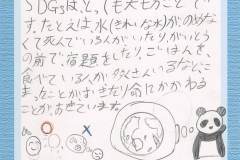 SDGsは、と、(も大ものことで
す。たとえば、水(きれいな水)がのめなく
て死んでいる人がいたり、がいとう
の前で、宿題をしたり、ごはんを、
食べている人が多くさんいるなど、こ
まったことがおきたり命にかかわる
ことがおきています